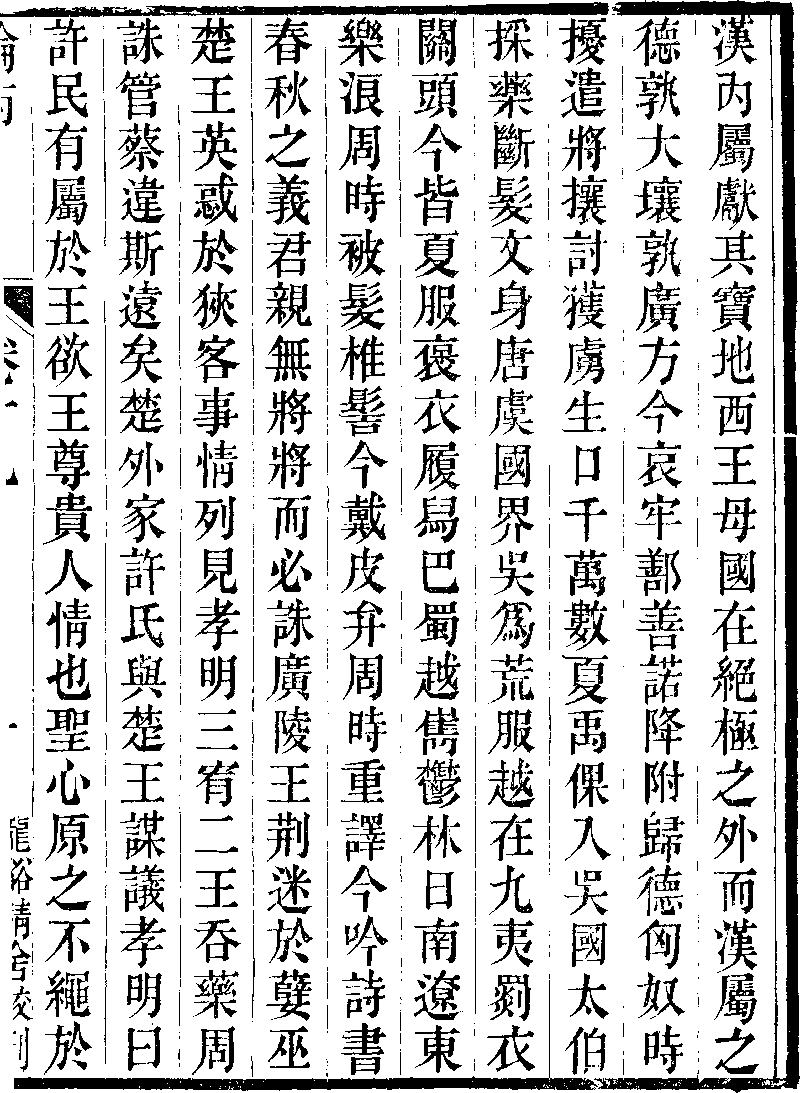 漢內屬獻其寶地西王母國在絕極之外而漢屬之
德孰大壤孰廣方今哀牢鄯善諾降附歸德匈奴時
擾遣將攘討獲虜生口千萬數夏禹倮入吳國太伯
採藥斷髮文身唐虞國界吳爲荒服越在九夷罽衣
關頭今皆夏服褒衣履舄巴蜀越嶲鬱林日南遼東
樂浪周時被髮椎髻今戴皮弁周時重譯今吟詩書
春秋之義君親無將將而必誅廣陵王荆迷於孽巫
楚王英惑於狹客事情列見孝明三宥二王吞藥周
誅管蔡違斯遠矣楚外家許氏與楚王謀議孝明曰
許民有屬於王欲王尊貴人情也聖心原之不繩於